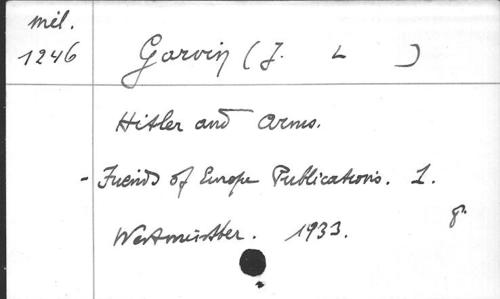 mil.
1246
Garvin (J. L )
Hitler and Arms.
- Friends of Europe Publications. 1.
Westminster. 1933.
8º.